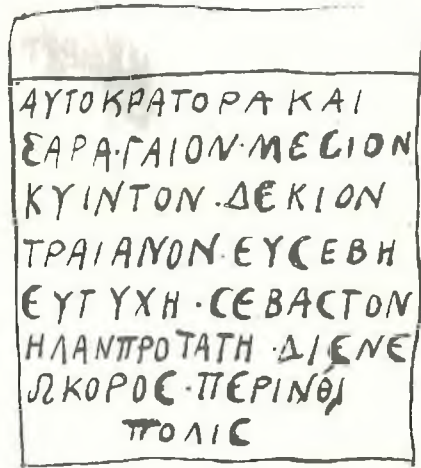 ΑΥΤΟΚΡΑΤΟΡΑ ΚΑΙ
ΣΑΡΑ·ΓΑΙΟΝ·ΜΕϹΙΟΝ
ΚΥΙΝΤΟΝ·ΔΕΚΙΟΝ
ΤΡΑΙΑΝΟΝ·ΕΥϹΕΒΗ
ΕΥΤΥΧΗ·ϹΕΒΑϹΤΟΝ
ΗΛΑΝΠΡΟΤΑΤΗ·ΔΙϹΝΕ
ΩΚΟΡΟϹ·ΠΕΡΙΝΘΙ
ΠΟΛΙϹ